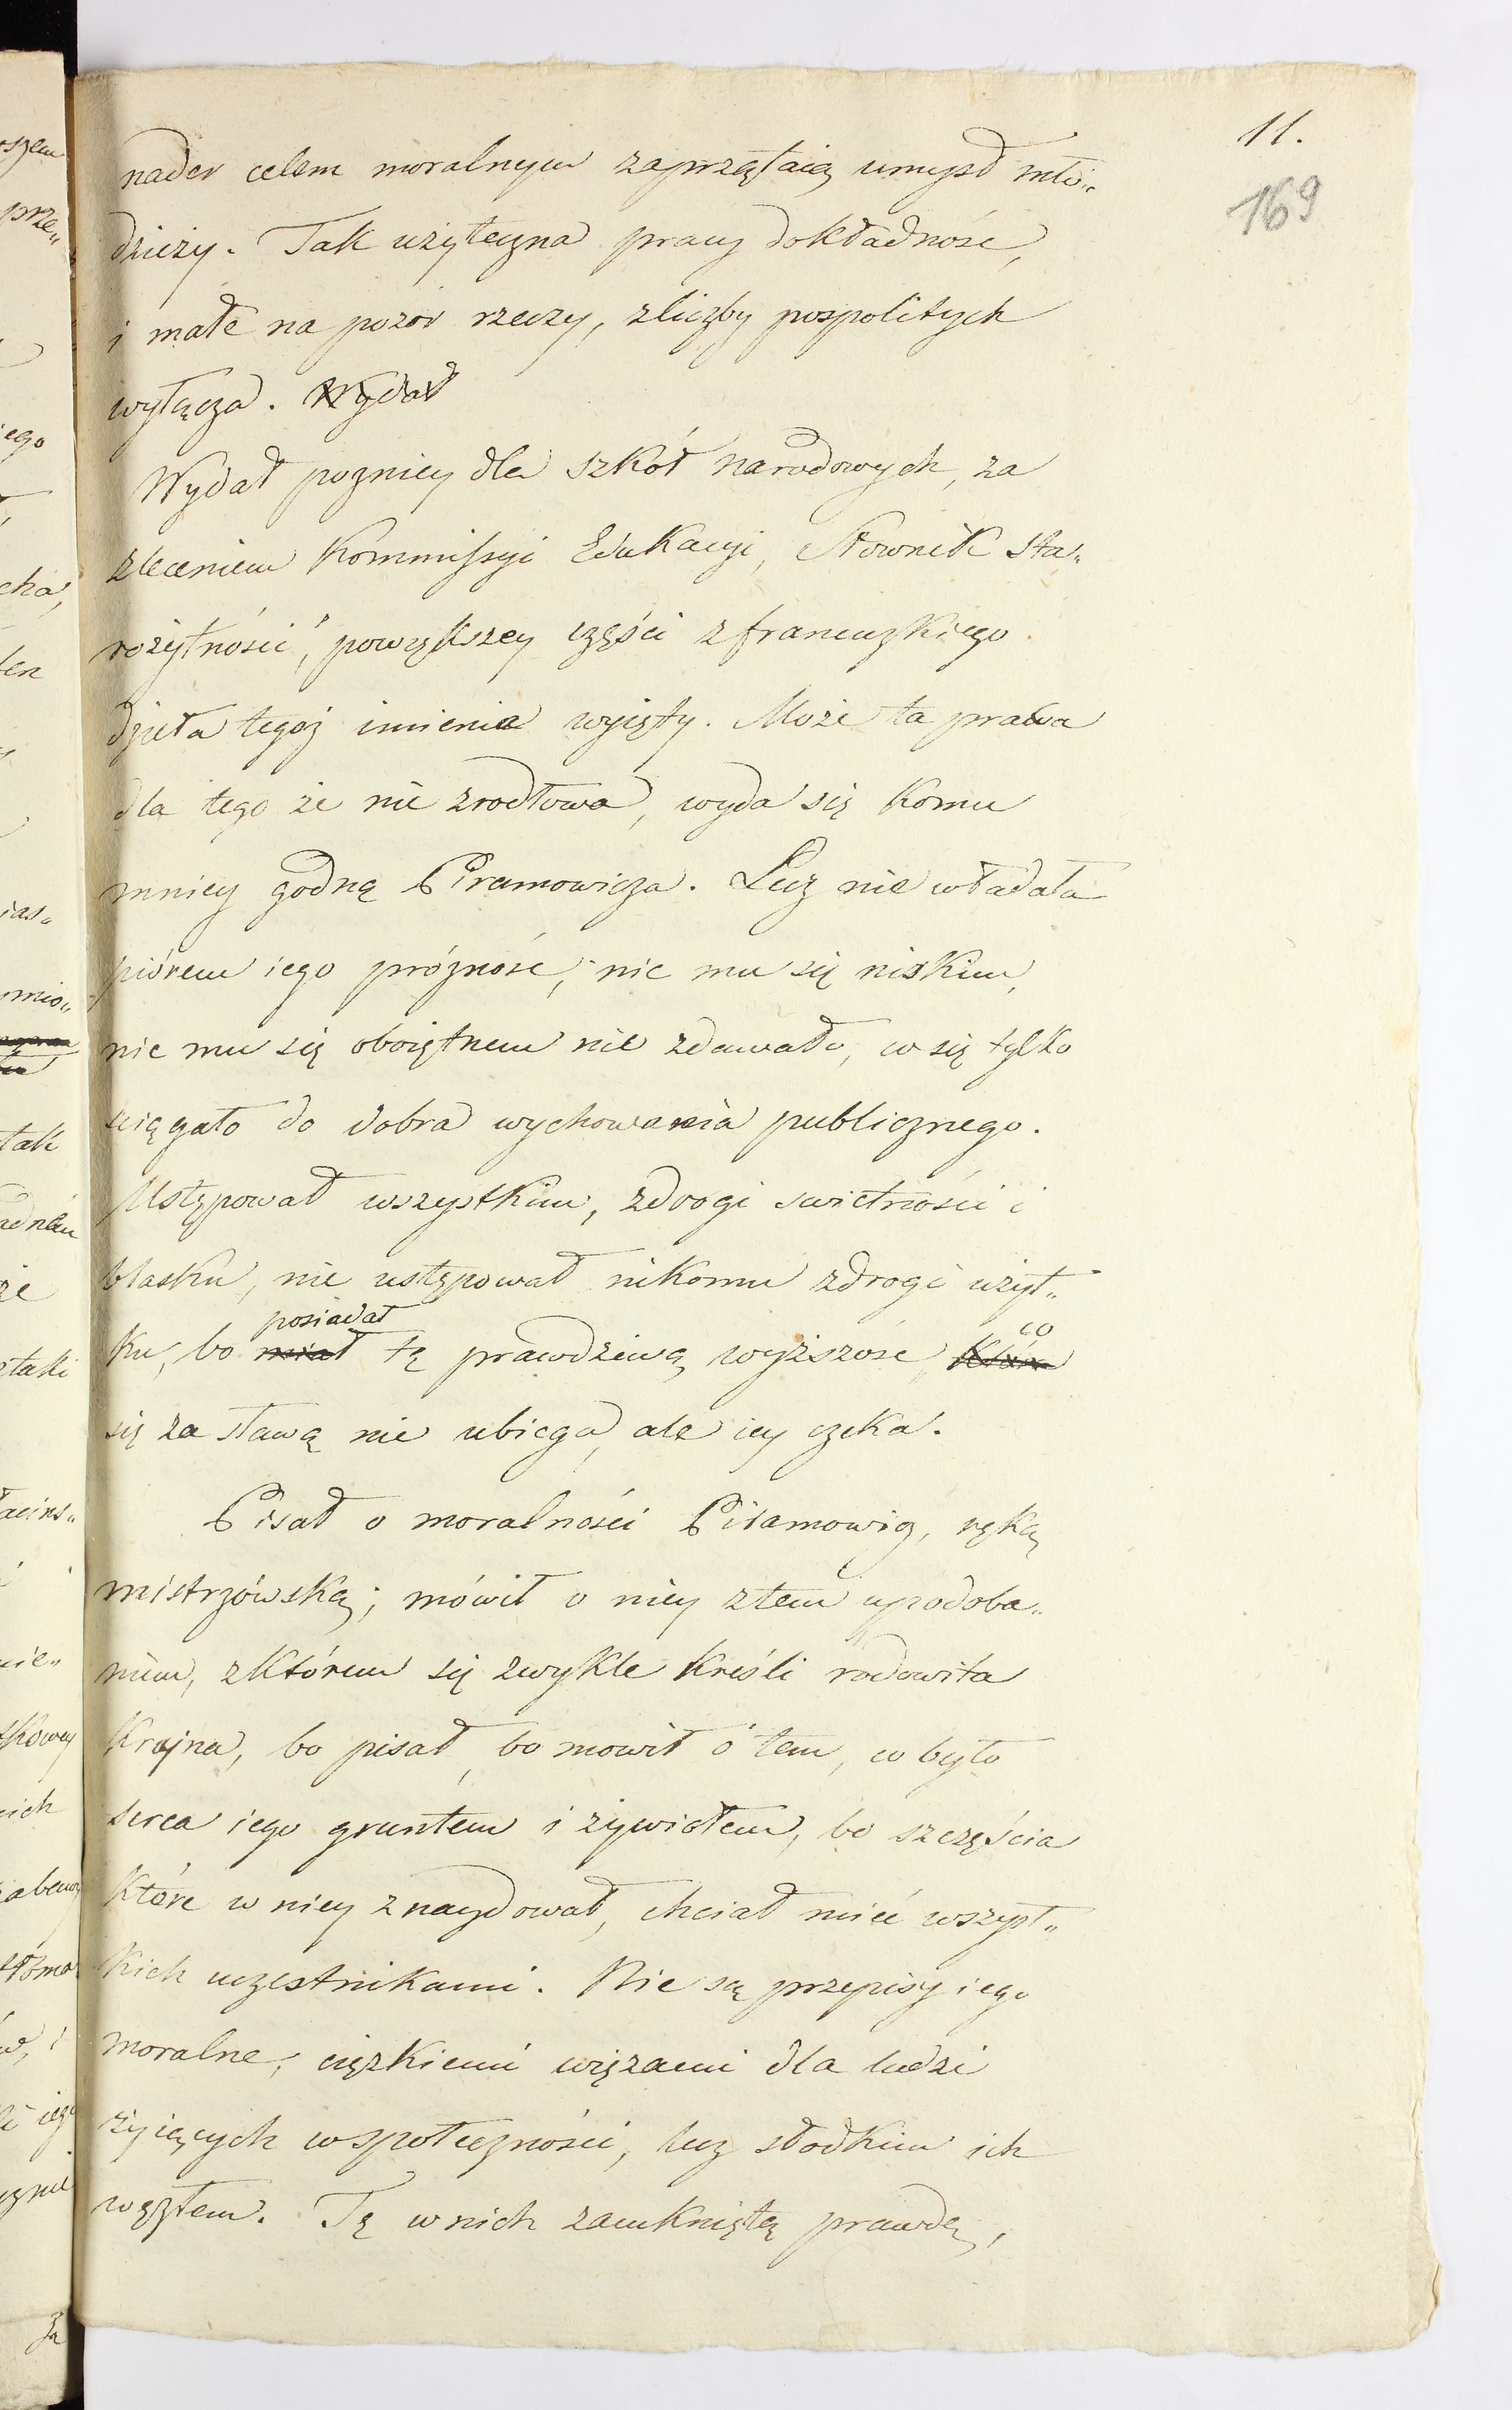 11.
169
nader celem moralnym zaprzątaią umysł mło„
dzieży. Tak użyteczna pracy dokładność,
i małe na pozor rzeczy, zliczby pospolitych
wyłącza. Wydał
Wydał pozniey dla szkół narodowych, za
zleceniem Kommissyi Edukacyi, Słownik sta„
rożytności, powiększey części zfrancuzkiego
dzieła tegoż imienia wyięty. Może ta praca
dla tego że nie zrodłowa, wyda się komu
mniey godną Piramowicza. Lecz nie władała
piórem iego próżność; nic mu się niskim,
nic mu się oboiętnem nie zdawało, co się tylko
ściągało do dobra wychowania publicznego.
Ustępował wszystkim, zdrogi swietności i
blasku, nie ustępował nikomu zdrogi użyt„
posiadał co
ku, bo miał tę prawdziwą wyższość, która
się za sławą nie ubiega, ale iey czeka.
Pisał o moralności Piramowicz, ręką
mistrzówską; mówił o niey ztem upodoba„
niem, zktórem się zwykle kreśli rodowita
kraina, bo pisał, bo mowił o tem, co było
serca iego gruntem i żywiołem, bo szczęścia
które w niey znaydował, chciał mieć wszyst„
kich uczestnikami. Nie są przepisy iego
moralne, ciężkiemi więzami dla ludzi
żyiących wspołeczności, lecz słodkim ich
węzłem. Tę wnich zamkniętą prawdę,